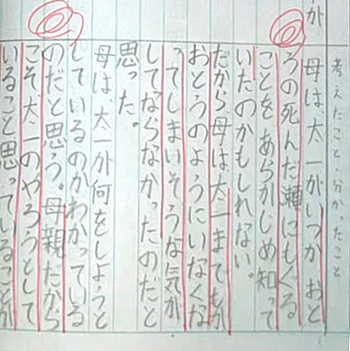 考えたこと・分かったこと
か
母は、太一がいつかおと
うの死んだ瀬にもぐる
ことをあらかじめ知って
いたのかもしれない。
だから母は太一までもが
おとうのようにいなくな
ってしまいそうな気が
してならなかったのだと
思った。
母は、太一が何をしようと
しているのかわかっている
のだと思う。母親だから
こそ太一のやろうとして
いること思っていることが